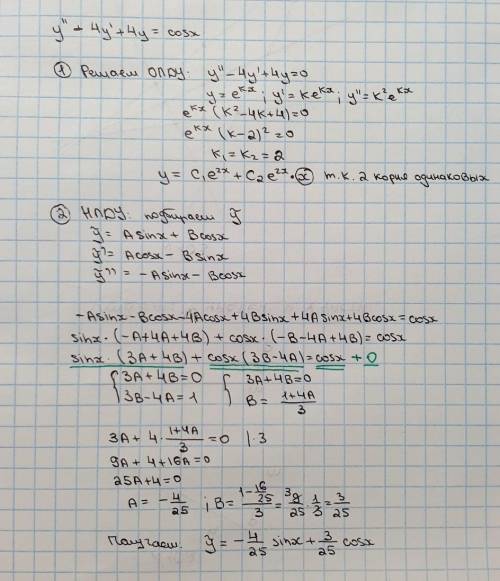 y'' - 4y' + 4y = cosx
① Решаем ОЛДУ: y'' - 4y' + 4y = 0
y = e^{kx}; y' = ke^{kx}; y'' = k²e^{kx}
e^{kx} (k² - 4k + 4) = 0
e^{kx} (k - 2)² = 0
k₁ = k₂ = 2
y = C₁e^{2x} + C₂e^{2x} · x т.к. 2 корня одинаковых
② НЛДУ: подбираем ỹ
ỹ = Asinx + Bcosx
ỹ' = Acosx - Bsinx
ỹ'' = -Asinx - Bcosx
-Asinx - Bcosx - 4Acosx + 4Bsinx + 4Asinx + 4Bcosx = cosx
sinx · (-A + 4A + 4B) + cosx · (-B - 4A + 4B) = cosx
sinx · (3A + 4B) + cosx (3B - 4A) = cosx + 0
{ 3A + 4B = 0 { 3A + 4B = 0
3B - 4A = 1 B = (1 + 4A)/3
3A + 4 · (1 + 4A)/3 = 0 | · 3
9A + 4 + 16A = 0
25A + 4 = 0
A = -4/25 ; B = (1 - 16/25)/3 = 9/25 · 1/3 = 3/25
Получаем: ỹ = -4/25 sinx + 3/25 cosx